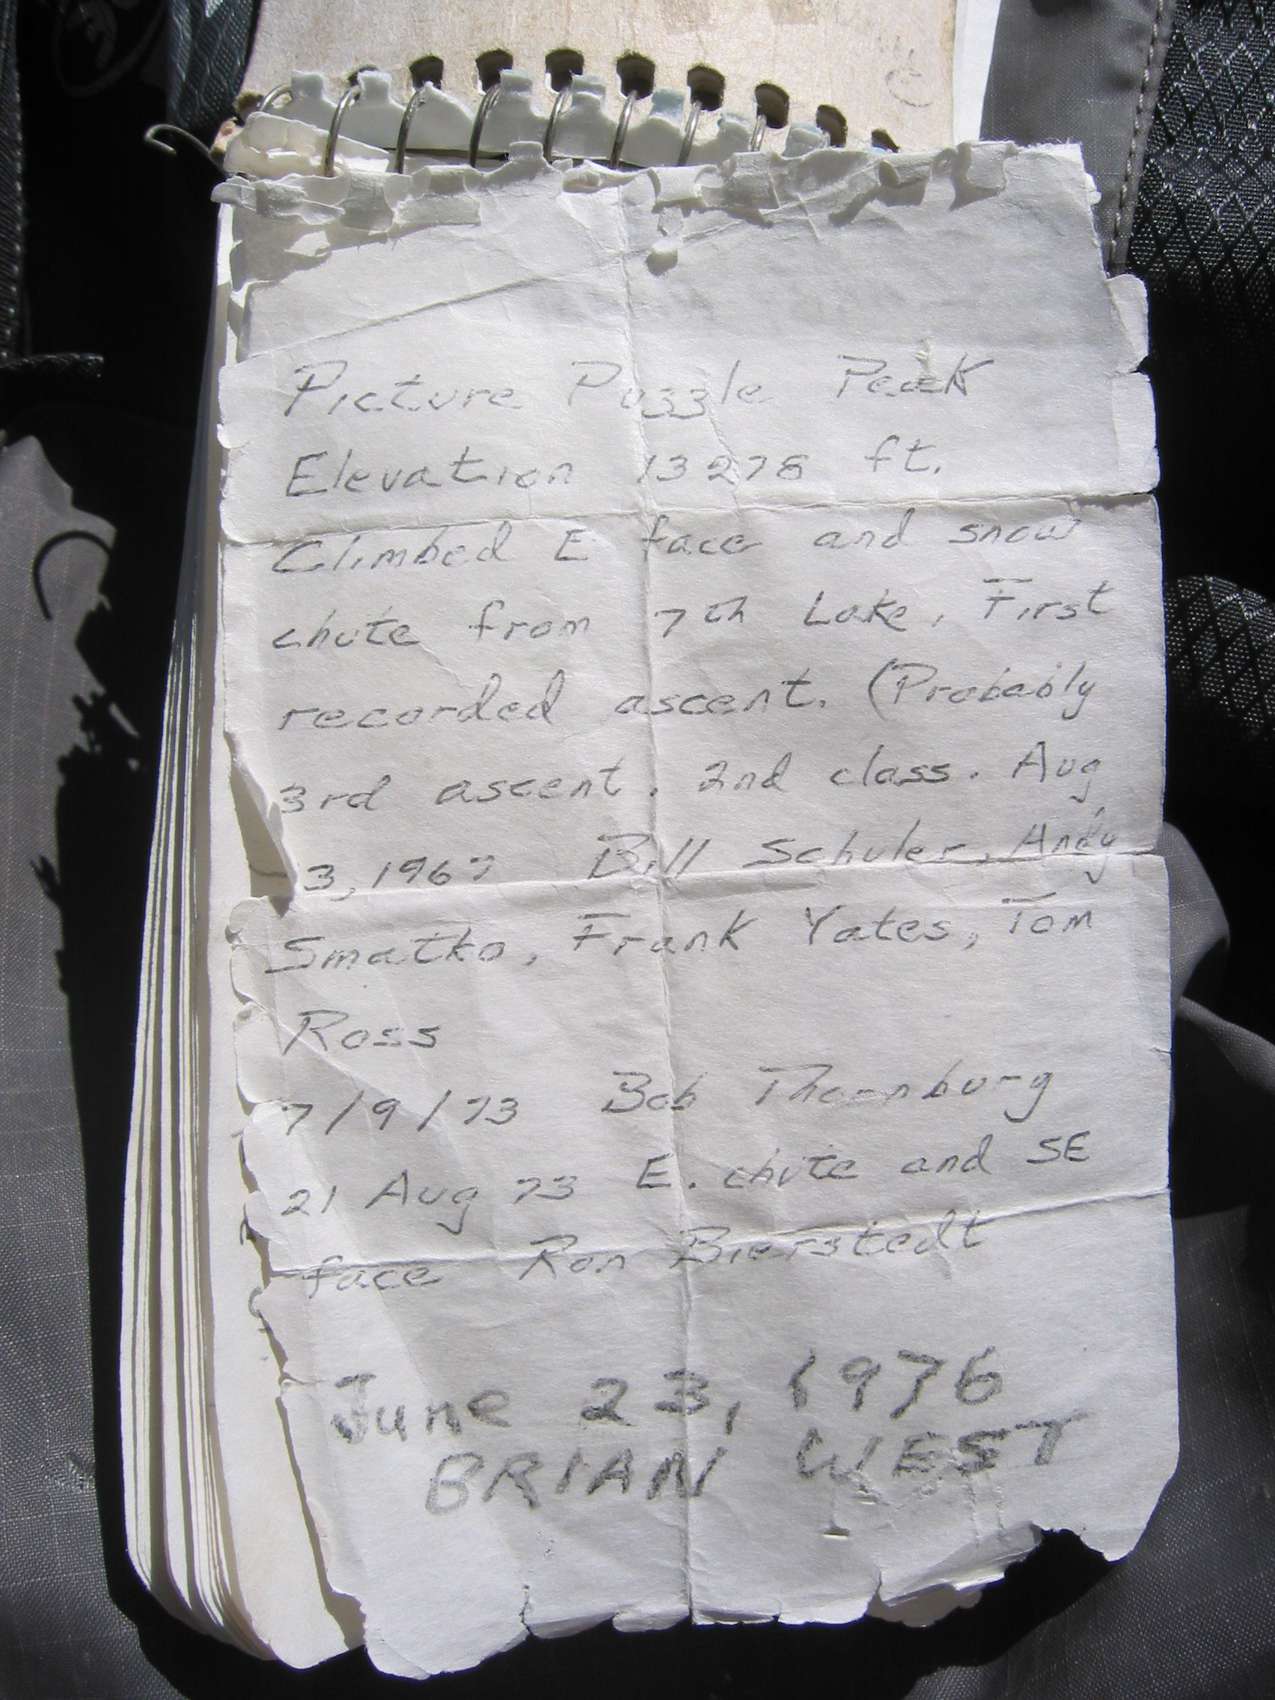 Picture Puzzle Peak
Elevation 13278 ft.
Climbed E face and snow
chute from 7th Lake. First
recorded ascent. (Probably
3rd ascent. 2nd class. Aug
3, 1967 Bill Schuler, Andy
Smatko, Frank Yates, Tom
Ross
7/9/73 Bob Thornburg
21 Aug 73 E. chute and SE
face Ron Bierstedt
June 23, 1976
BRIAN WEST